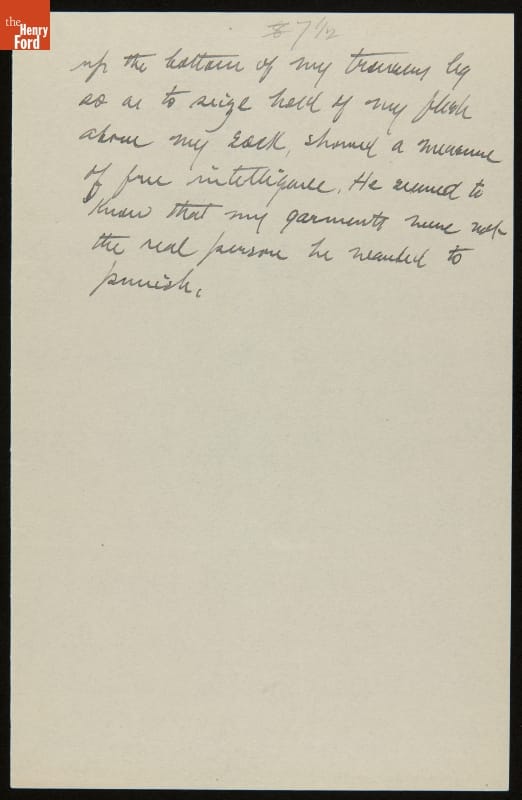 the
Henry
Ford
8 7 1/2
up the bottom of my trousers leg
so as to seize hold of my flesh
above my sock, showed a measure
of free intelligence. He seemed to
know that my garments were not
the real person he wanted to
punish.